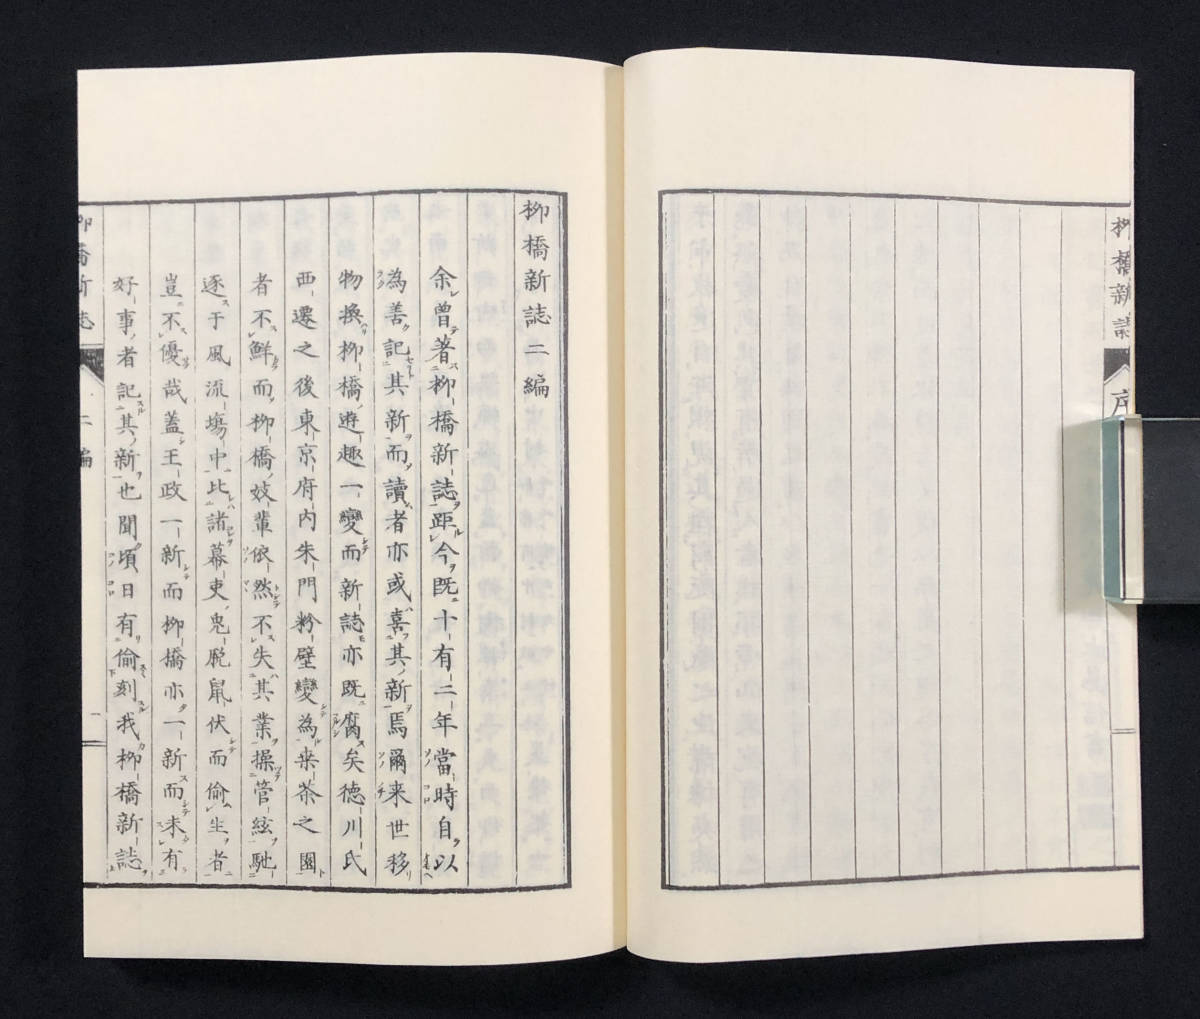 柳橋新誌
序
柳橋新誌二編
余曾著柳橋新誌距今既十有二年當時自以
為善記其新而讀者亦或喜其新焉爾来世移
物換柳橋遊趣一變而新誌亦既腐矣徳川氏
西遷之後東京府内朱門粉壁變為桒茶之園
者不鮮而柳橋妓輩依然不失其業操管絃馳
逐于風流塲中比諸幕吏兎脱鼠伏而偷生者
豈不優哉蓋王政一新而柳橋亦一新而未有
好事者記其新也聞頃日有偷刻我柳橋新誌
柳橋新誌
二編
一